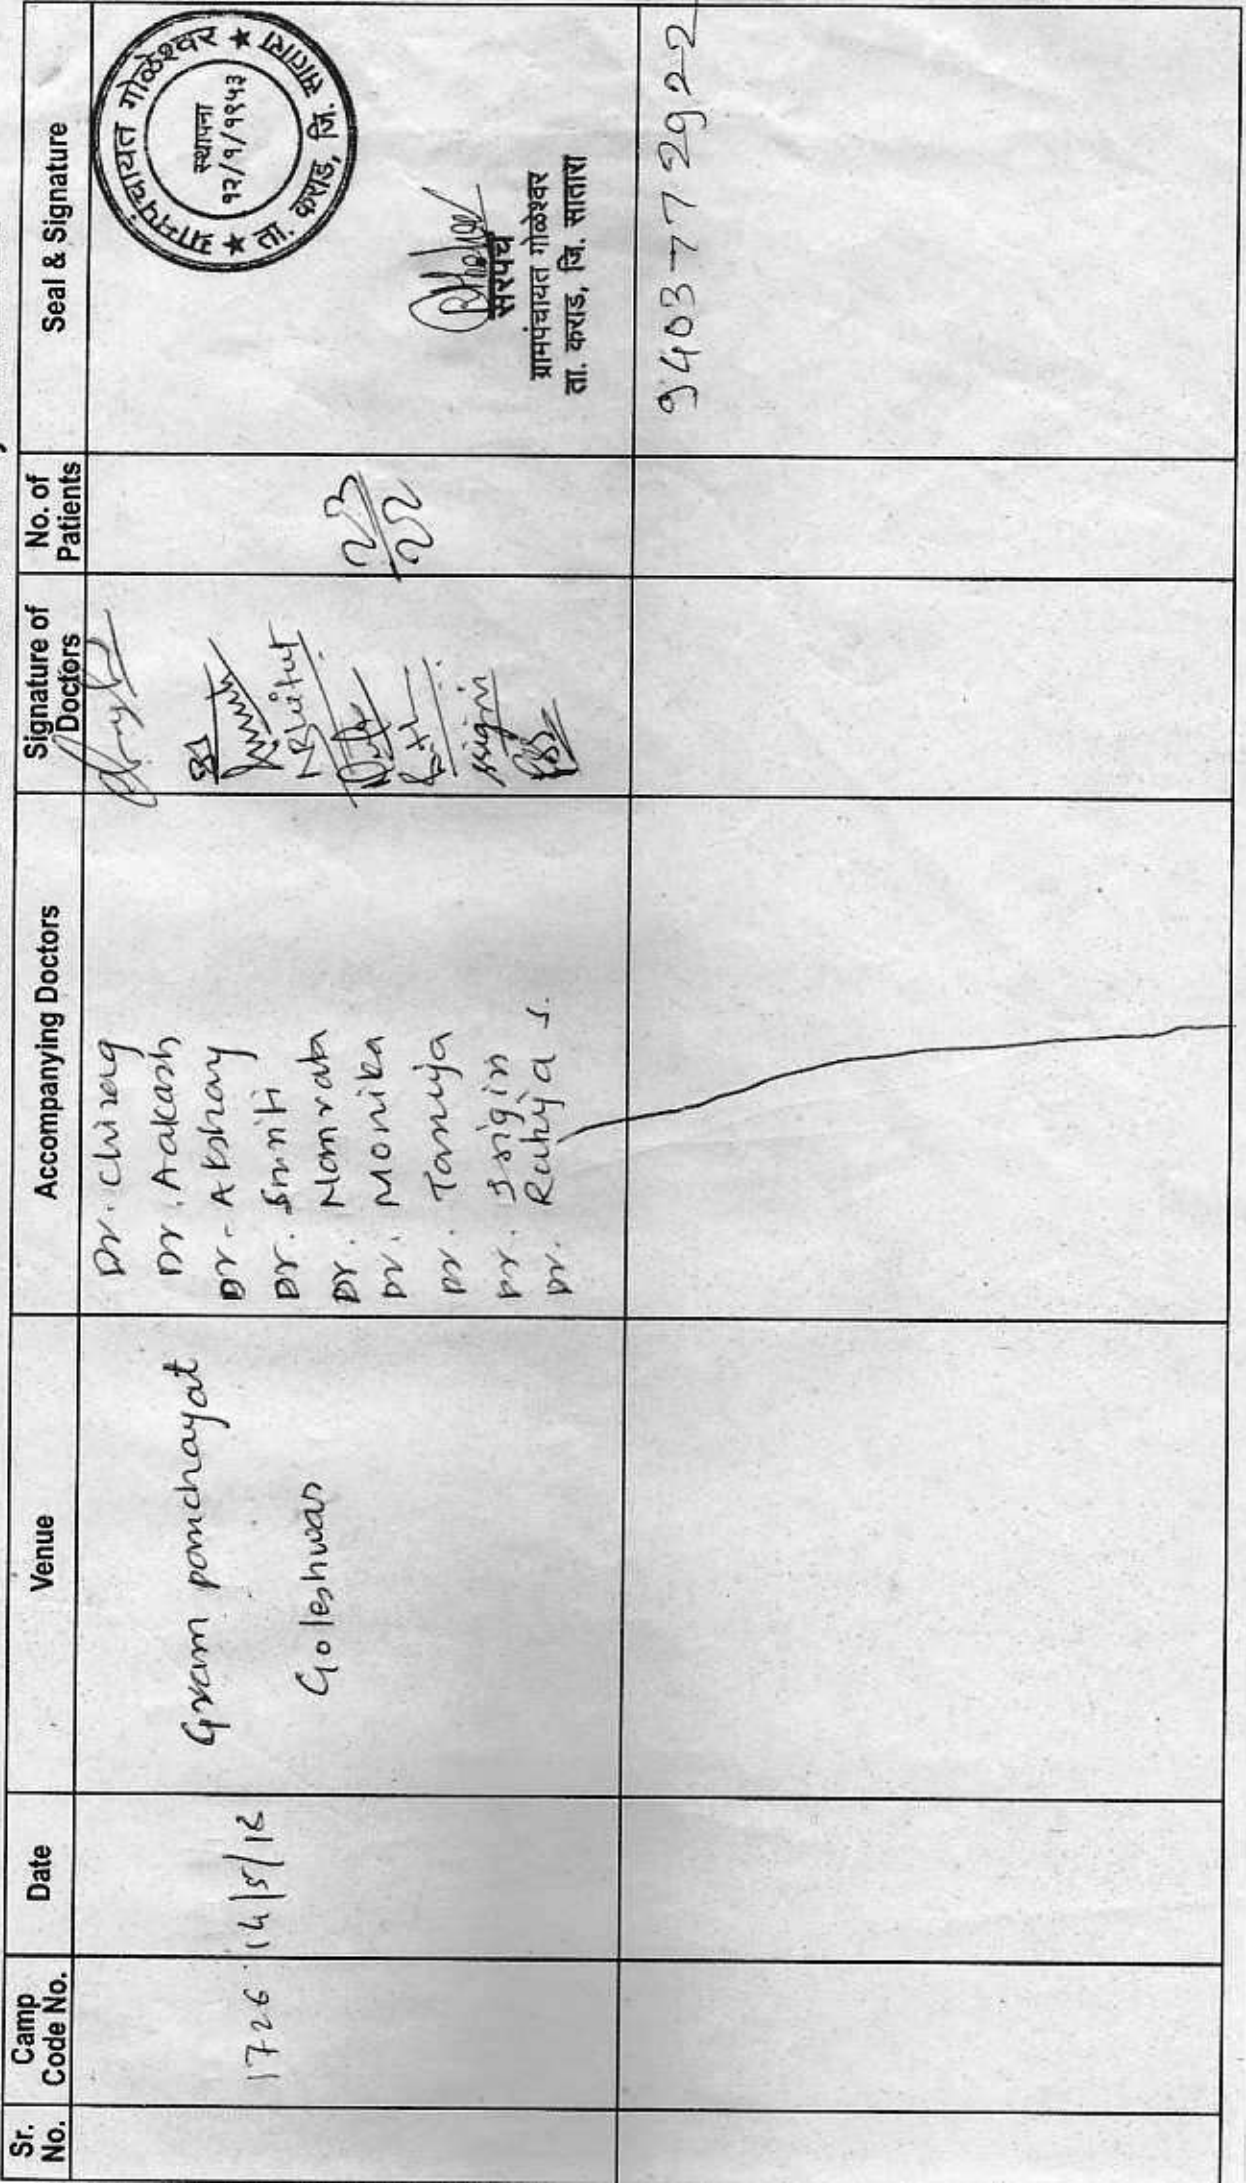 Sr. No.
Camp Code No.
Date
Venue
Accompanying Doctors
Signature of Doctors
No. of Patients
Seal & Signature
1726
14/5/18
Gram panchayat
Goleshwar
Dr. Chirag
Dr. Aakash
Dr. Akshay
Dr. Smriti
Dr. Namrata
Dr. Monika
Dr. Tanuja
Dr. Isigin
Dr. Rahija S.
23/22
ग्रामपंचायत गोळेश्वर ★ ता. कराड, जि. सातारा ★
स्थापना
१२/१/१९५३
सरपंच
ग्रामपंचायत गोळेश्वर
ता. कराड, जि. सातारा
9403772922